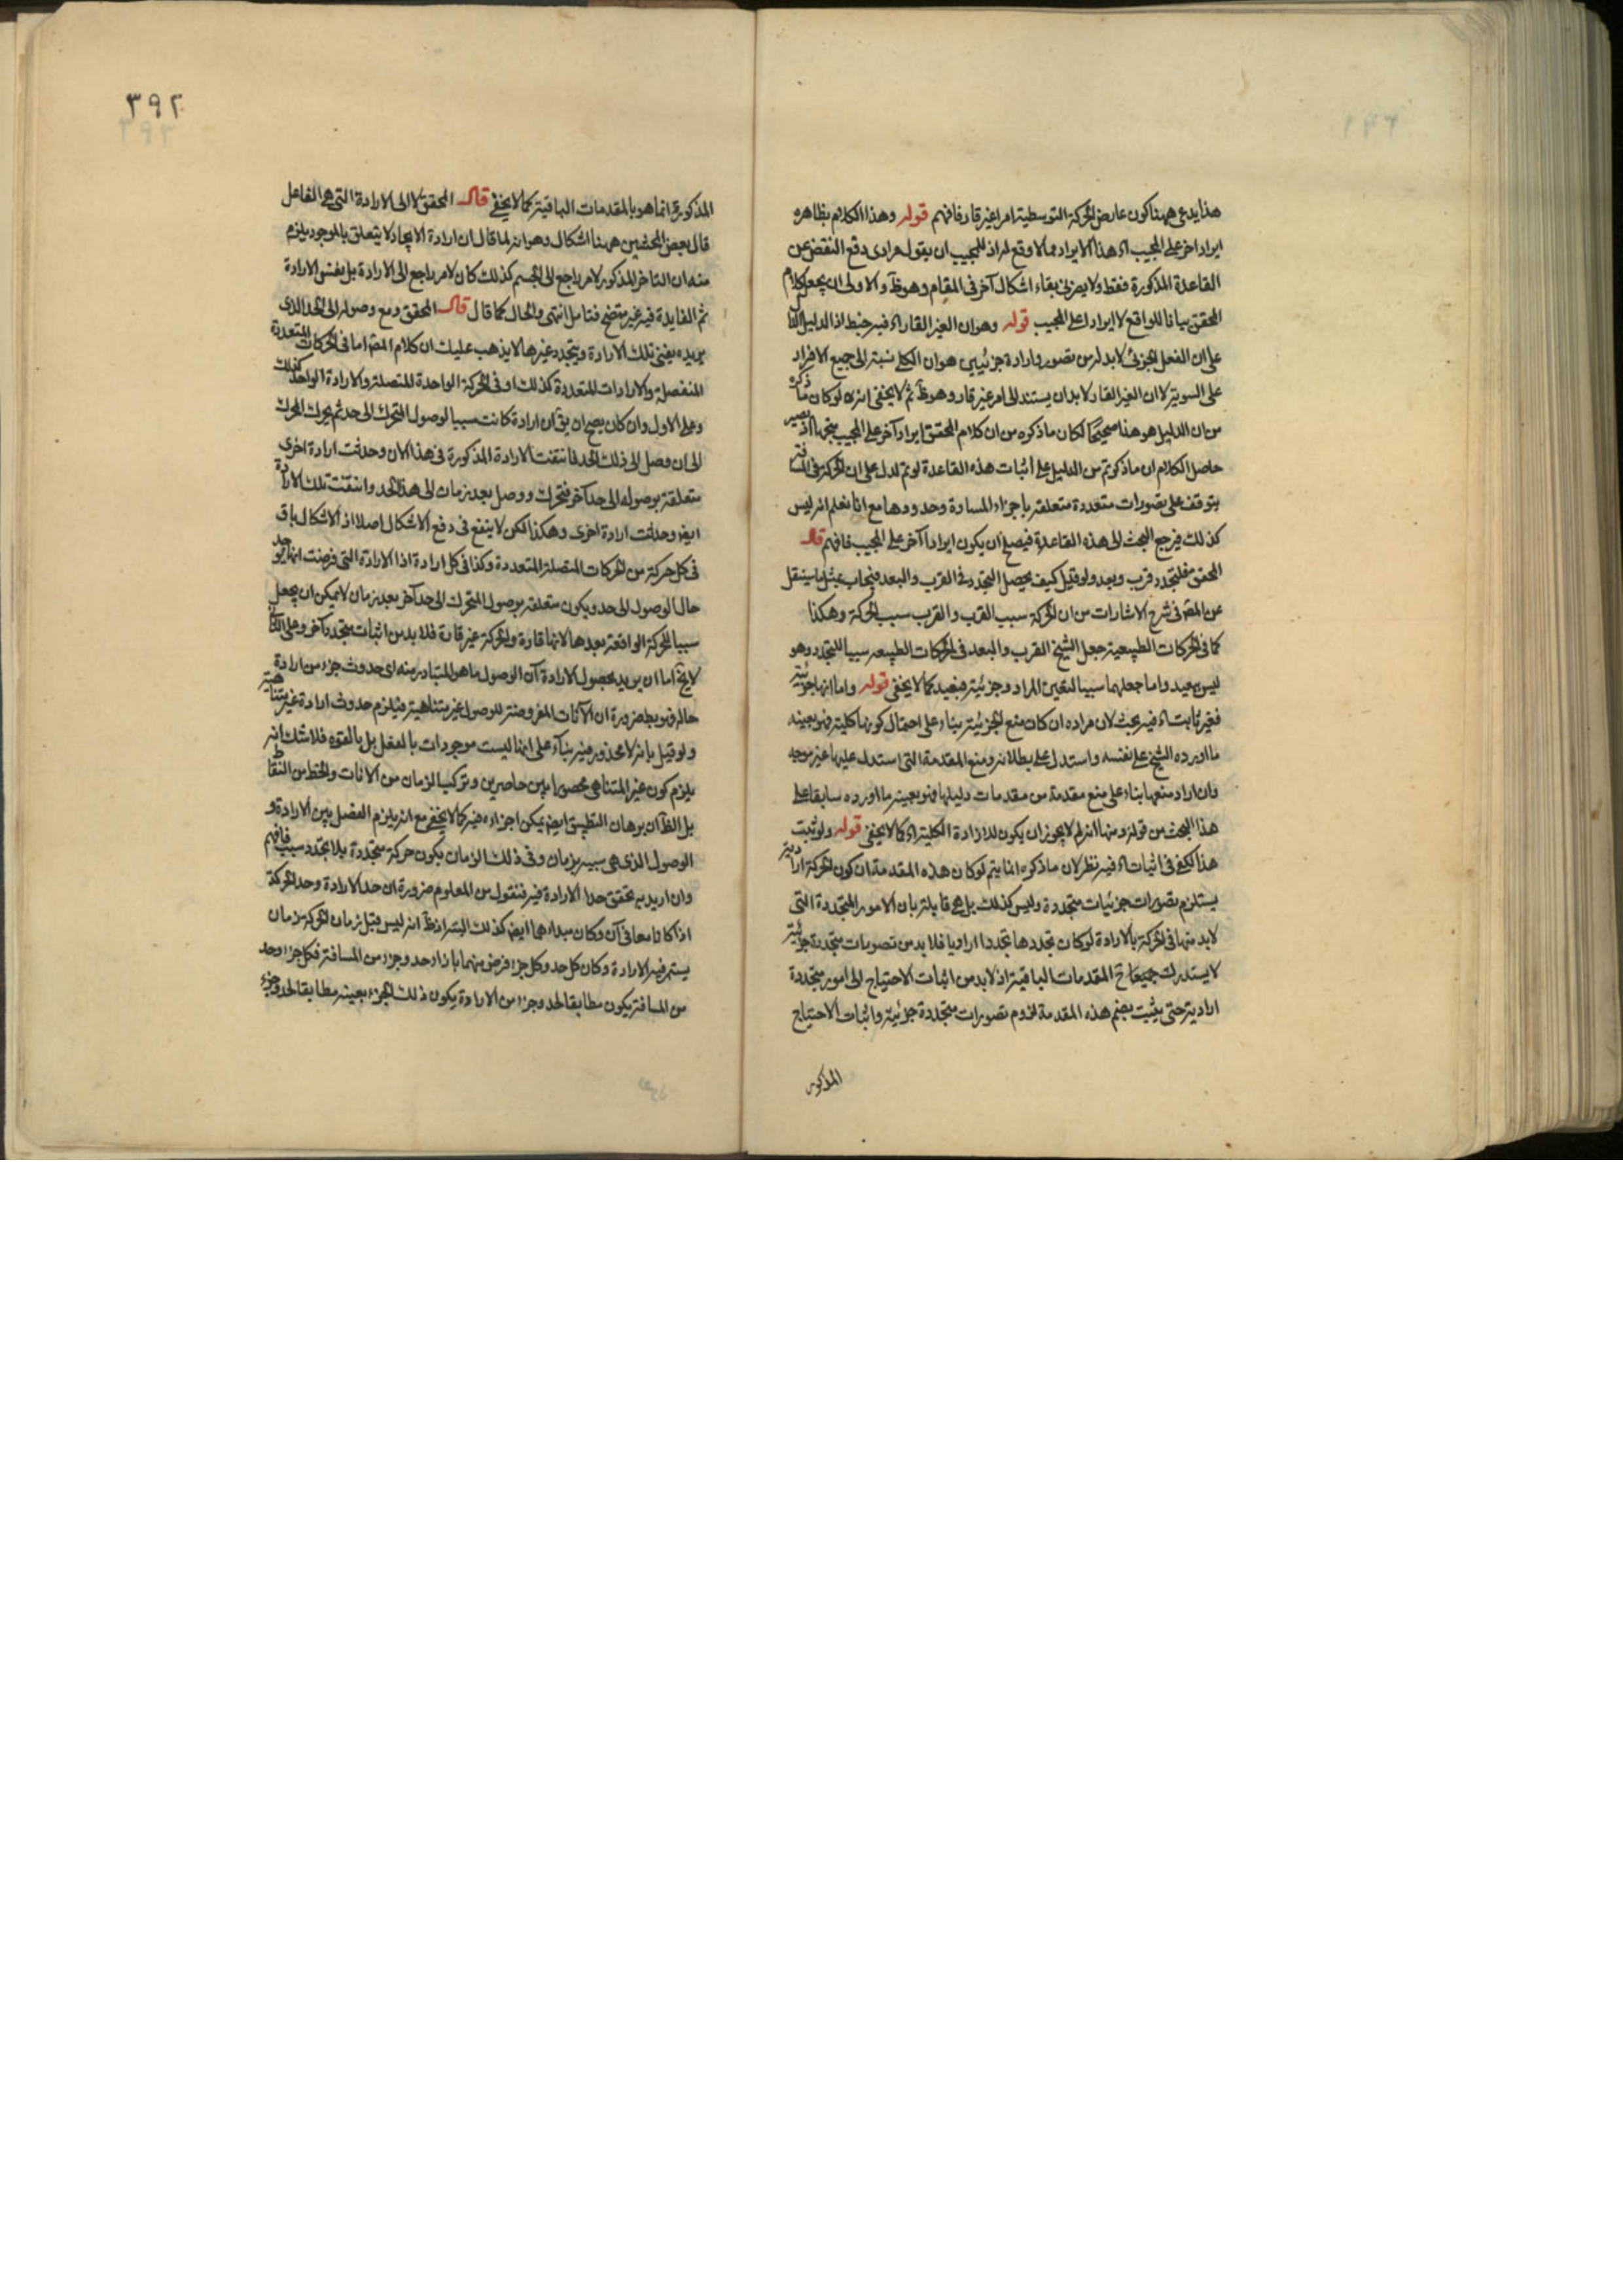 هذا يدعى ههنا كون عارض الحركة التوسطية امرا غير قار فافهم قوله وهذا الكلام بظاهره
ايراد اخر على المجيب اه هذا الايراد مما لا وقع له اذ للمجيب ان يقول مرادى دفع النقض عن
القاعدة المذكورة فقط ولا يضرنى بقاء اشكال آخر فى المقام وهو ظ والاولى ان يجعل كلام
المحقق بيانا للواقع لا ايرادا على المجيب قوله وهو ان الغير القار اه فيه خبط اذ الدليل
على ان الفعل الجزئى لا بد له من تصور وارادة جزئيين هو ان الكلى نسبته الى جميع الافراد
على السوية لا ان الغير القار لا بد ان يستند الى امر غير قار وهو ظ ثم لا يخفى انه لو كان ما ذكره
من ان الدليل هو هذا صحيحا لكان ما ذكره من ان كلام المحقق ايراد آخر على المجيب متجها اذ يصير
حاصل الكلام ان ما ذكرتم من الدليل على اثبات هذه القاعدة لو تم لدل على ان الحركة فى المسافة
يتوقف على تصورات متعددة متعلقة باجزاء المسافة وحدودها مع انا نعلم انه ليس
كذلك فيرجع البحث الى هذه القاعدة فيصلح ان يكون ايرادا آخر على المجيب فافهم قال
المحقق فلتجدد قرب وبعد ولو قيل كيف يحصل التجدد فى القرب والبعد فيجاب بمثل ما سينقل
عن المصر فى شرح الاشارات من ان الحركة سبب القرب والقرب سبب الحركة وهكذا
كما فى الحركات الطبيعية جعل الشيخ القرب والبعد فى الحركات الطبيعه سببا للتجدد وهو
ليس ببعيد واما جعلهما سببا لتعين المراد وجزئيته فبعيد كما لا يخفى قوله واما انها جزئية
فغير ثابت اه فيه بحث لان مراده ان كان منع الجزئية بناء على احتمال كونها كلية فهو بعينه
ما اورده الشيخ على نفسه واستدل على بطلانه ومنع المقدمة التى استدل عليها غير موجه
وان اراد منعها بناء على منع مقدمة من مقدمات دليلها فهو بعينه ما اورده سابقا على
هذا البحث من قوله ومنها انه لم لا يجوز ان يكون للارادة الكلية اه كما لا يخفى قوله ولو ثبت
هذا لكفى فى اثبات اه فيه نظر لان ما ذكره انما يتم لو كان هذه المقدمة ان كون الحركة ارادية
يستلزم تصورات جزئيات متجددة وليس كذلك بل هى قايلة بان الامور المتجددة التى
لا بد منها فى الحركة بالارادة لو كان تجددها تجددا اراديا فلا بد من تصورات متجددة جزئية
لا يستدرك جميعا ح المقدمات الباقية اذ لا بد من اثبات الاحتياج الى امور متجددة
ارادية حتى يثبت بضم هذه المقدمة لزوم تصورات متجددة جزئية واثبات الاحتياج
المذكور
٣٩٢
المذكور ح انما هو بالمقدمات الباقية كما لا يخفى قال المحقق لا الى الارادة التى هى الفاعل
قال بعض المحشين ههنا اشكال وهو انه لما قال ان ارادة الايجاد لا يتعلق بالموجود يلزم
منه ان التاخر المذكور لامر راجع الى الجسم كذلك كان لامر راجع الى الارادة بل بنفس الارادة
ثم الفايدة فيه غير متضح فتامل انتهى والحال كما قال قال المحقق ومع وصوله الى الحد الذى
يريده يفنى تلك الارادة ويتجدد غيرها لا يذهب عليك ان كلام المصر اما فى الحركات المتعددة
المنفصلة والارادات المتعددة كذلك او فى الحركة الواحدة المتصلة والارادة الواحدة كذلك
وعلى الاول وان كان يصح ان يق ان ارادة كانت سببا لوصول المتحرك الى حد ثم يحرك المحرك
الى ان وصل الى ذلك الحد فانتفت الارادة المذكورة فى هذا الان وحدثت ارادة اخرى
متعلقة بوصوله الى حد آخر فتحرك ووصل بعد زمان الى هذا الحد وانتفت تلك الارادة
ايض وحدثت ارادة اخرى وهكذا لكن لا ينفع فى دفع الاشكال اصلا اذ الاشكال باق
فى كل حركة من الحركات المتصلة المتعددة وكذا فى كل ارادة اذ الارادة التى فرضت انها يوجد
حال الوصول الى حد ويكون متعلقة بوصول المتحرك الى حد آخر بعد زمان لا يمكن ان يجعل
سببا للحركة الواقعة بعدها لانها قارة والحركة غير قارة فلا بد من اثبات متجدد آخر وعلى الثانى
لا يخ اما ان يريد بحصول الارادة آن الوصول ما هو المتبادر منه اى حدوث جزء من ارادة
حالة فهو بط ضرورة ان الآنات المفروضة للوصول غير متناهية فيلزم حدوث ارادة غير متناهية
ولو قيل بانه لا محذور فيه بناء على انها ليست موجودات بالفعل بل بالقوه فلا شك انه
يلزم كون غير المتناهى محصورا بين حاصرين وتركب الزمان من الانات والخط من النقاط
بل الظ ان برهان التطبيق ايض يمكن اجزاءه فيه كما لا يخفى مع انه يلزم الفصل بين الارادة و
الوصول الذى هى سببه بزمان وفى ذلك الزمان يكون حركة متجددة بلا تجدد سبب فافهم
وان اريد به تحقق حد الارادة فيه فنقول من المعلوم ضرورة ان حد الارادة وحد الحركة
اذا كانا معا فى آن وكان مبداءهما ايض كذلك البتة اذ ظ انه ليس قبل زمان الحركة زمان
يستمر فيه الارادة وكان كل حد وكل جزء فرض منهما بازاء حد وجزء من المسافة فكل جزء وحد
من المسافة يكون مطابقا لحد وجزء من الارادة يكون ذلك الجزء بعينه مطابقا لحد وجزء